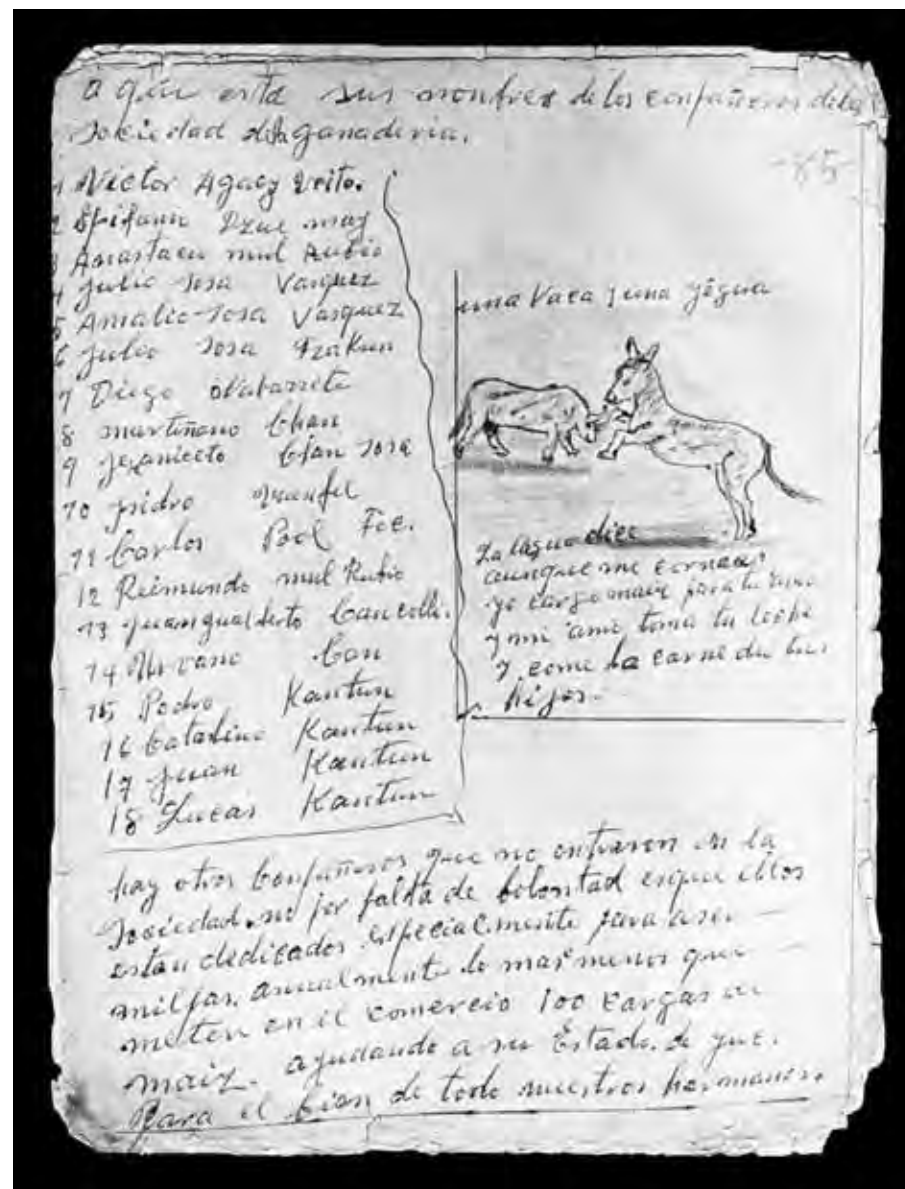 a qui esta sus nonbres de los conpañeros dela
Sociedad dela ganaderia.
-85-
1 Victor Agacy Brito.
2 Epifanio Dzue may
3 Anastacu mul Rubio
4 Julio Sosa Vasquez
5 Amalio Sosa Vasquez
6 Julio Sosa Tzakun
7 Diego Nabarrete
8 martiñano Chan
9 Jeaniceto Chan Sosa
10 Isidro
11 Carlos Pool Fee.
12 Reimundo mul Rubio
13 Juan gualberto Cancolli.
14 Urvano Can
15 Pedro Kantun
16 Catalino Kantun
17 Juan Kantun
18 Lucas Kantun
una Vaca y una yegua
La llegua dice
aunque me corneas
yo cargo maiz para tu amo
y mi amo toma tu leche
y come la carne de tus
hijos.
hay otros Conpañeros que no entraron en la
Sociedad. no por falta de bolontad esque ellos
estan dedicados especialmente para aser
milpas. anualmente lo mas menos que
meten en el comercio 100 cargas de
maiz. ayudando a su Estado. de que.
Para el bien de todo nuestros hermanos.